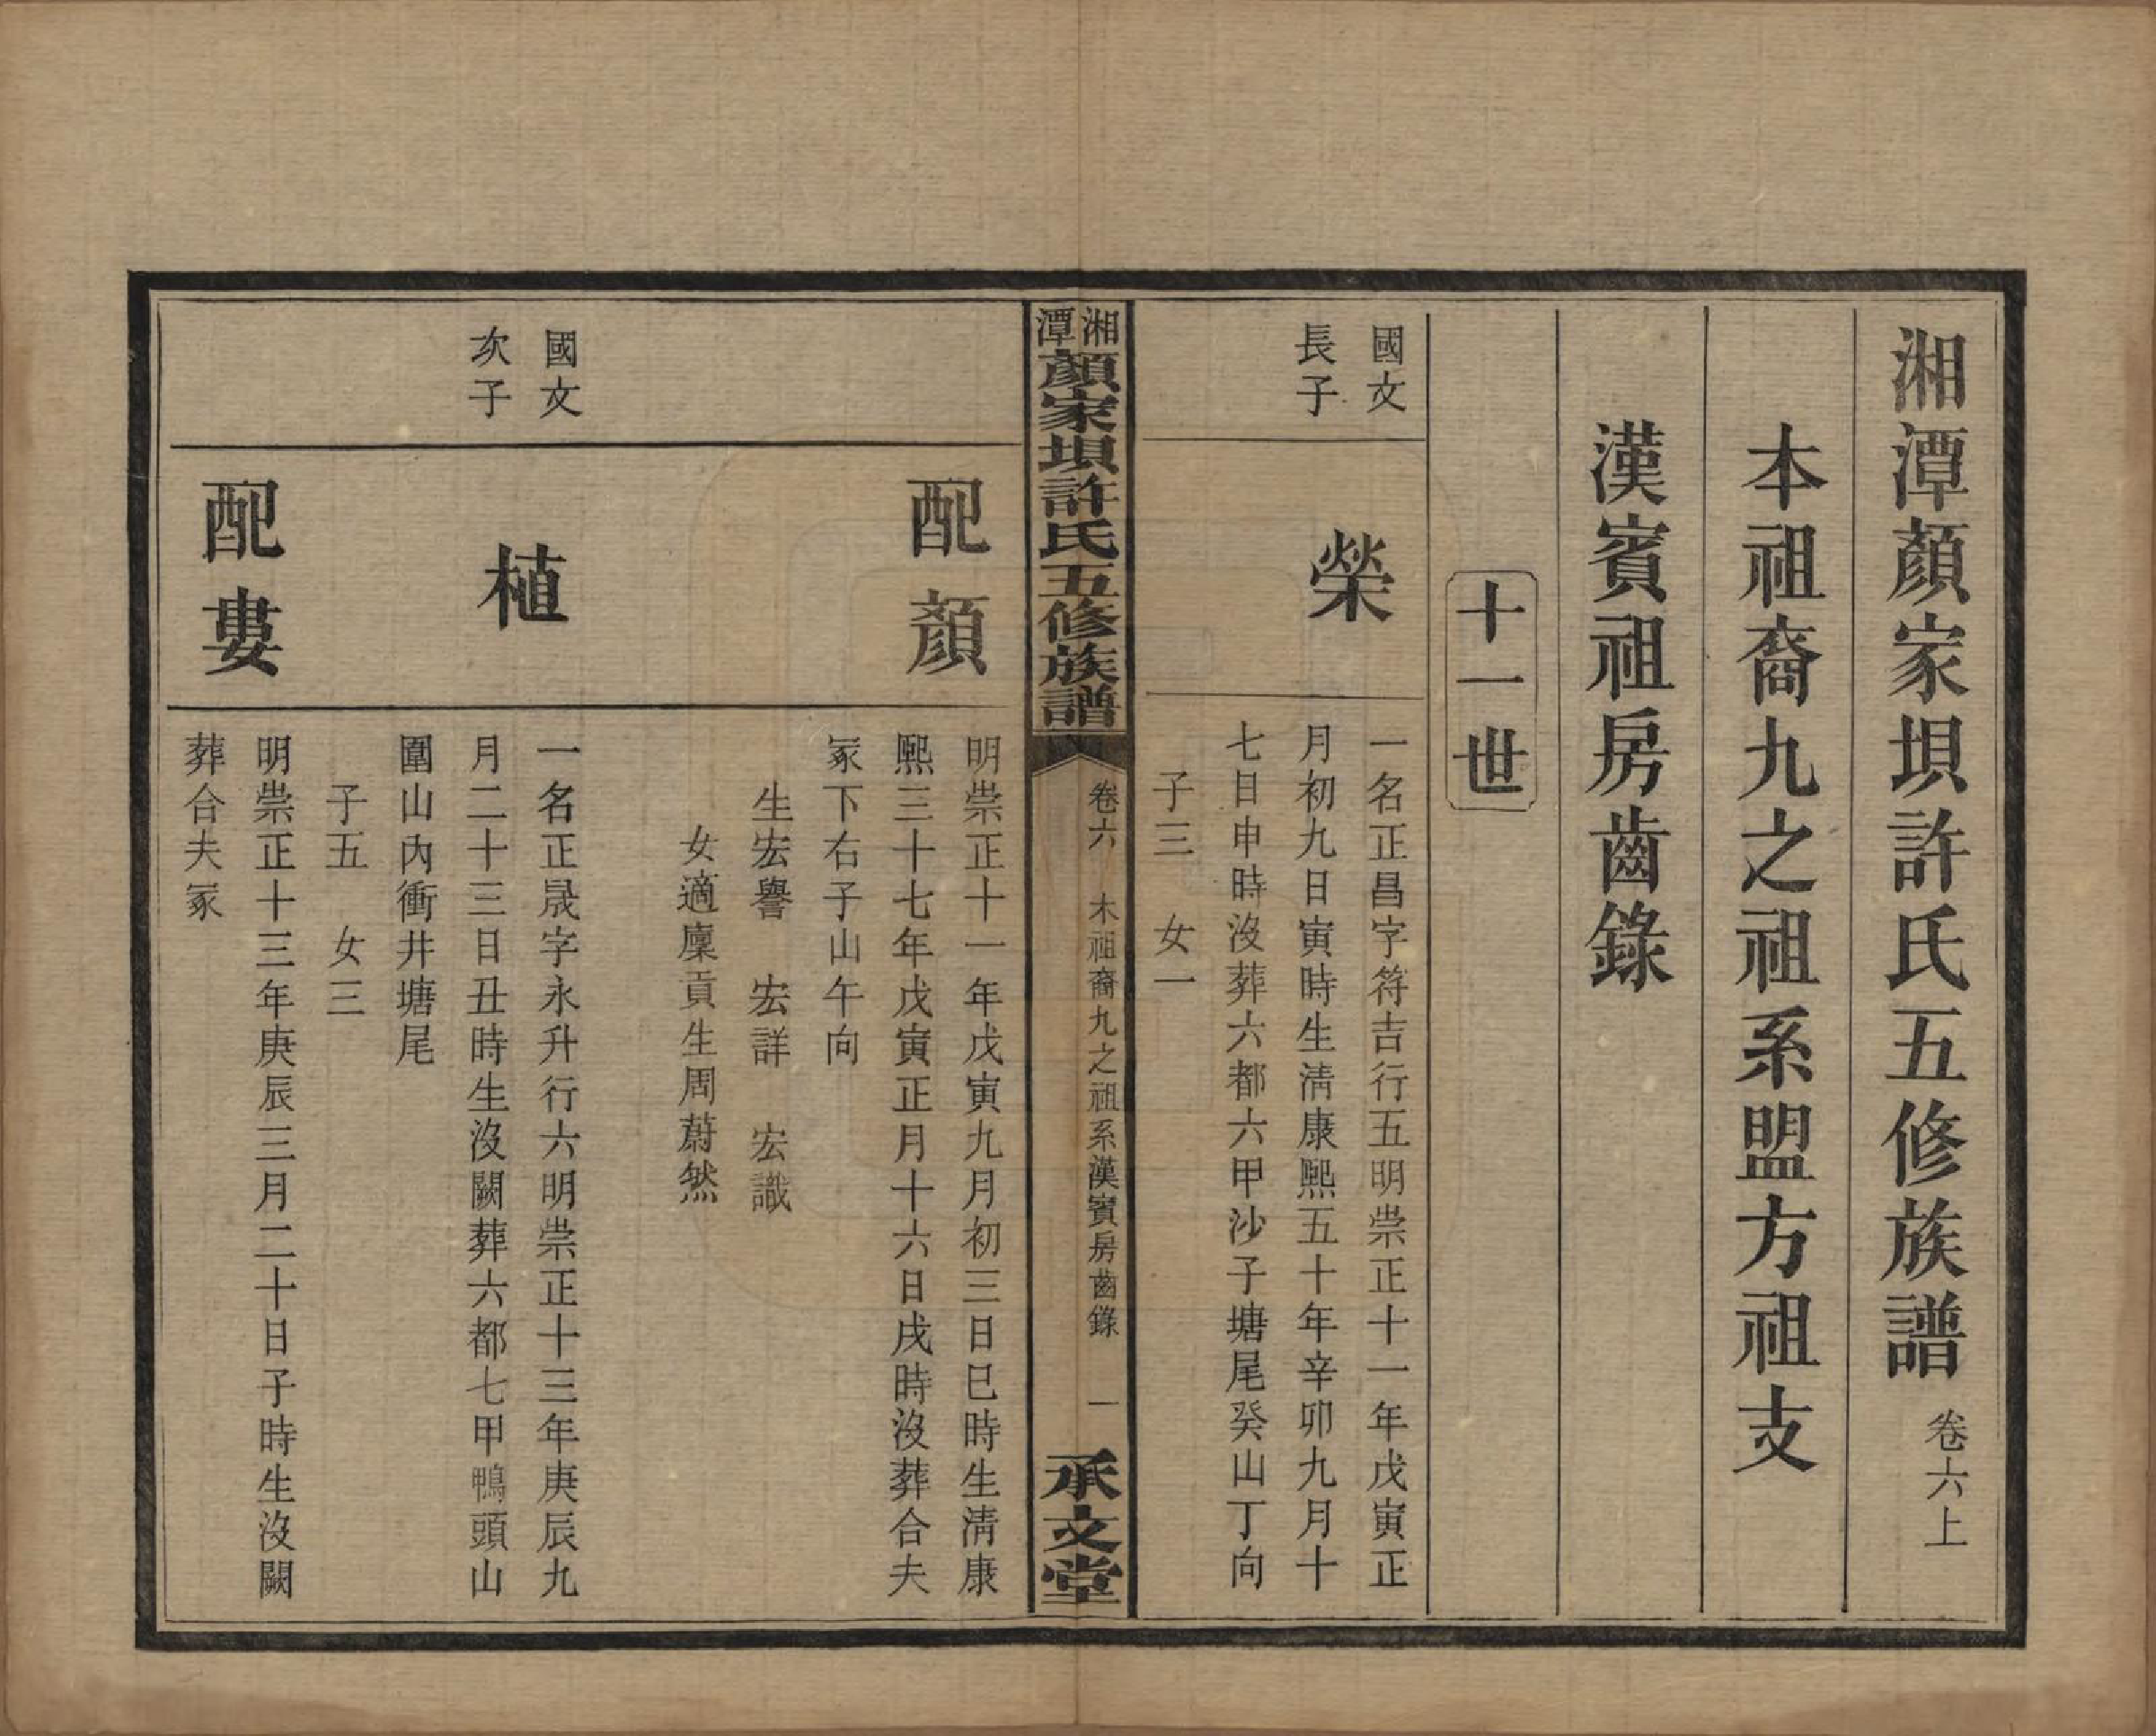 湘潭顏家垻許氏五修族譜 卷六上
本祖裔九之祖系盟方祖支
漢賓祖房齒錄
十一世
國文
長子
榮
一名正昌字符吉行五明崇正十一年戊寅正
月初九日寅時生淸康熙五十年辛卯九月十
七日申時沒葬六都六甲沙子塘尾癸山丁向
子三 女一
湘潭顏家垻許氏五修族譜 卷六 木祖裔九之祖系漢賓房齒錄 一 承文堂
配顏
明崇正十一年戊寅九月初三日巳時生淸康
熙三十七年戊寅正月十六日戌時沒葬合夫
冢下右子山午向
生宏譽 宏詳 宏識
女適廩貢生周蔚然
國文
次子
植
一名正晟字永升行六明崇正十三年庚辰九
月二十三日丑時生沒闕葬六都七甲鴨頭山
圍山內衝井塘尾
子五 女三
配婁
明崇正十三年庚辰三月二十日子時生沒闕
葬合夫冢